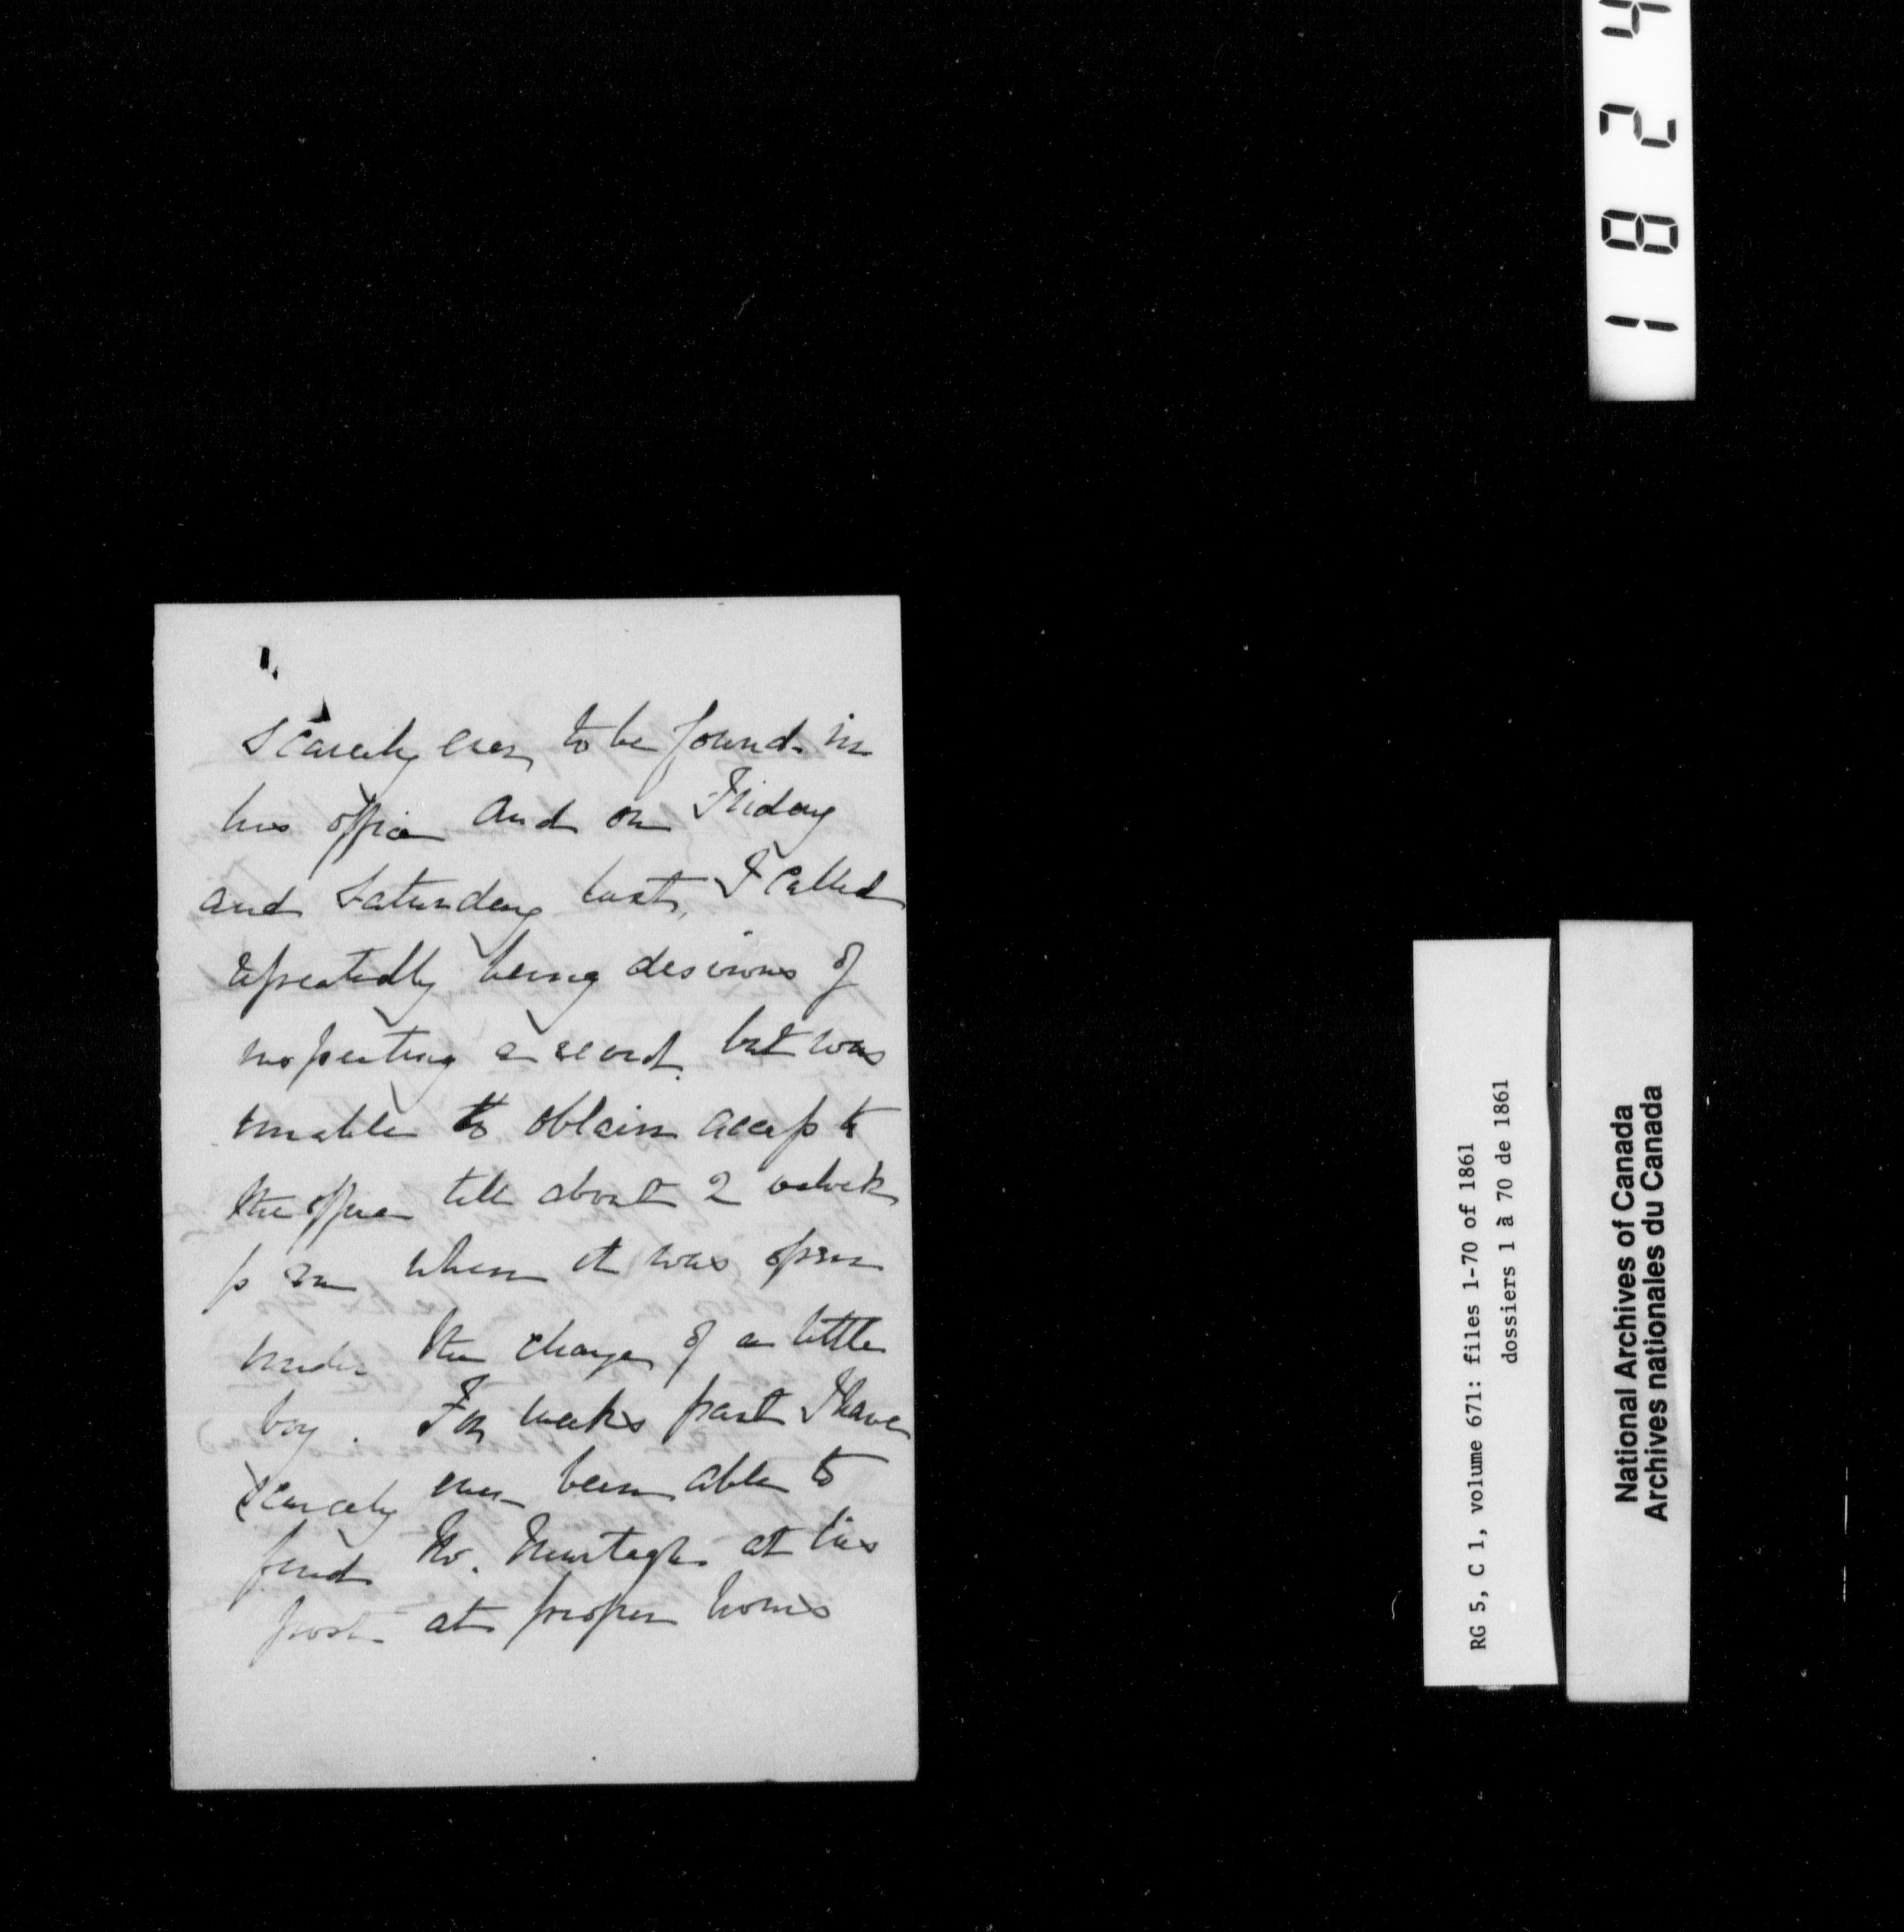 scarcely ever to be found in
his office and on Friday
and Saturday last, I called
repeatedly being desirous of
inspecting a record but was
unable to obtain access to
the office till about 2 oclock
p m when it was open
under the charge of a little
boy. For weeks past I have
scarcely ever been able to
find Mr. Murtagh at his
post at proper hours
1 8 2 4
RG 5, C 1, volume 671: files 1-70 of 1861
dossiers 1 à 70 de 1861
National Archives of Canada
Archives nationales du Canada